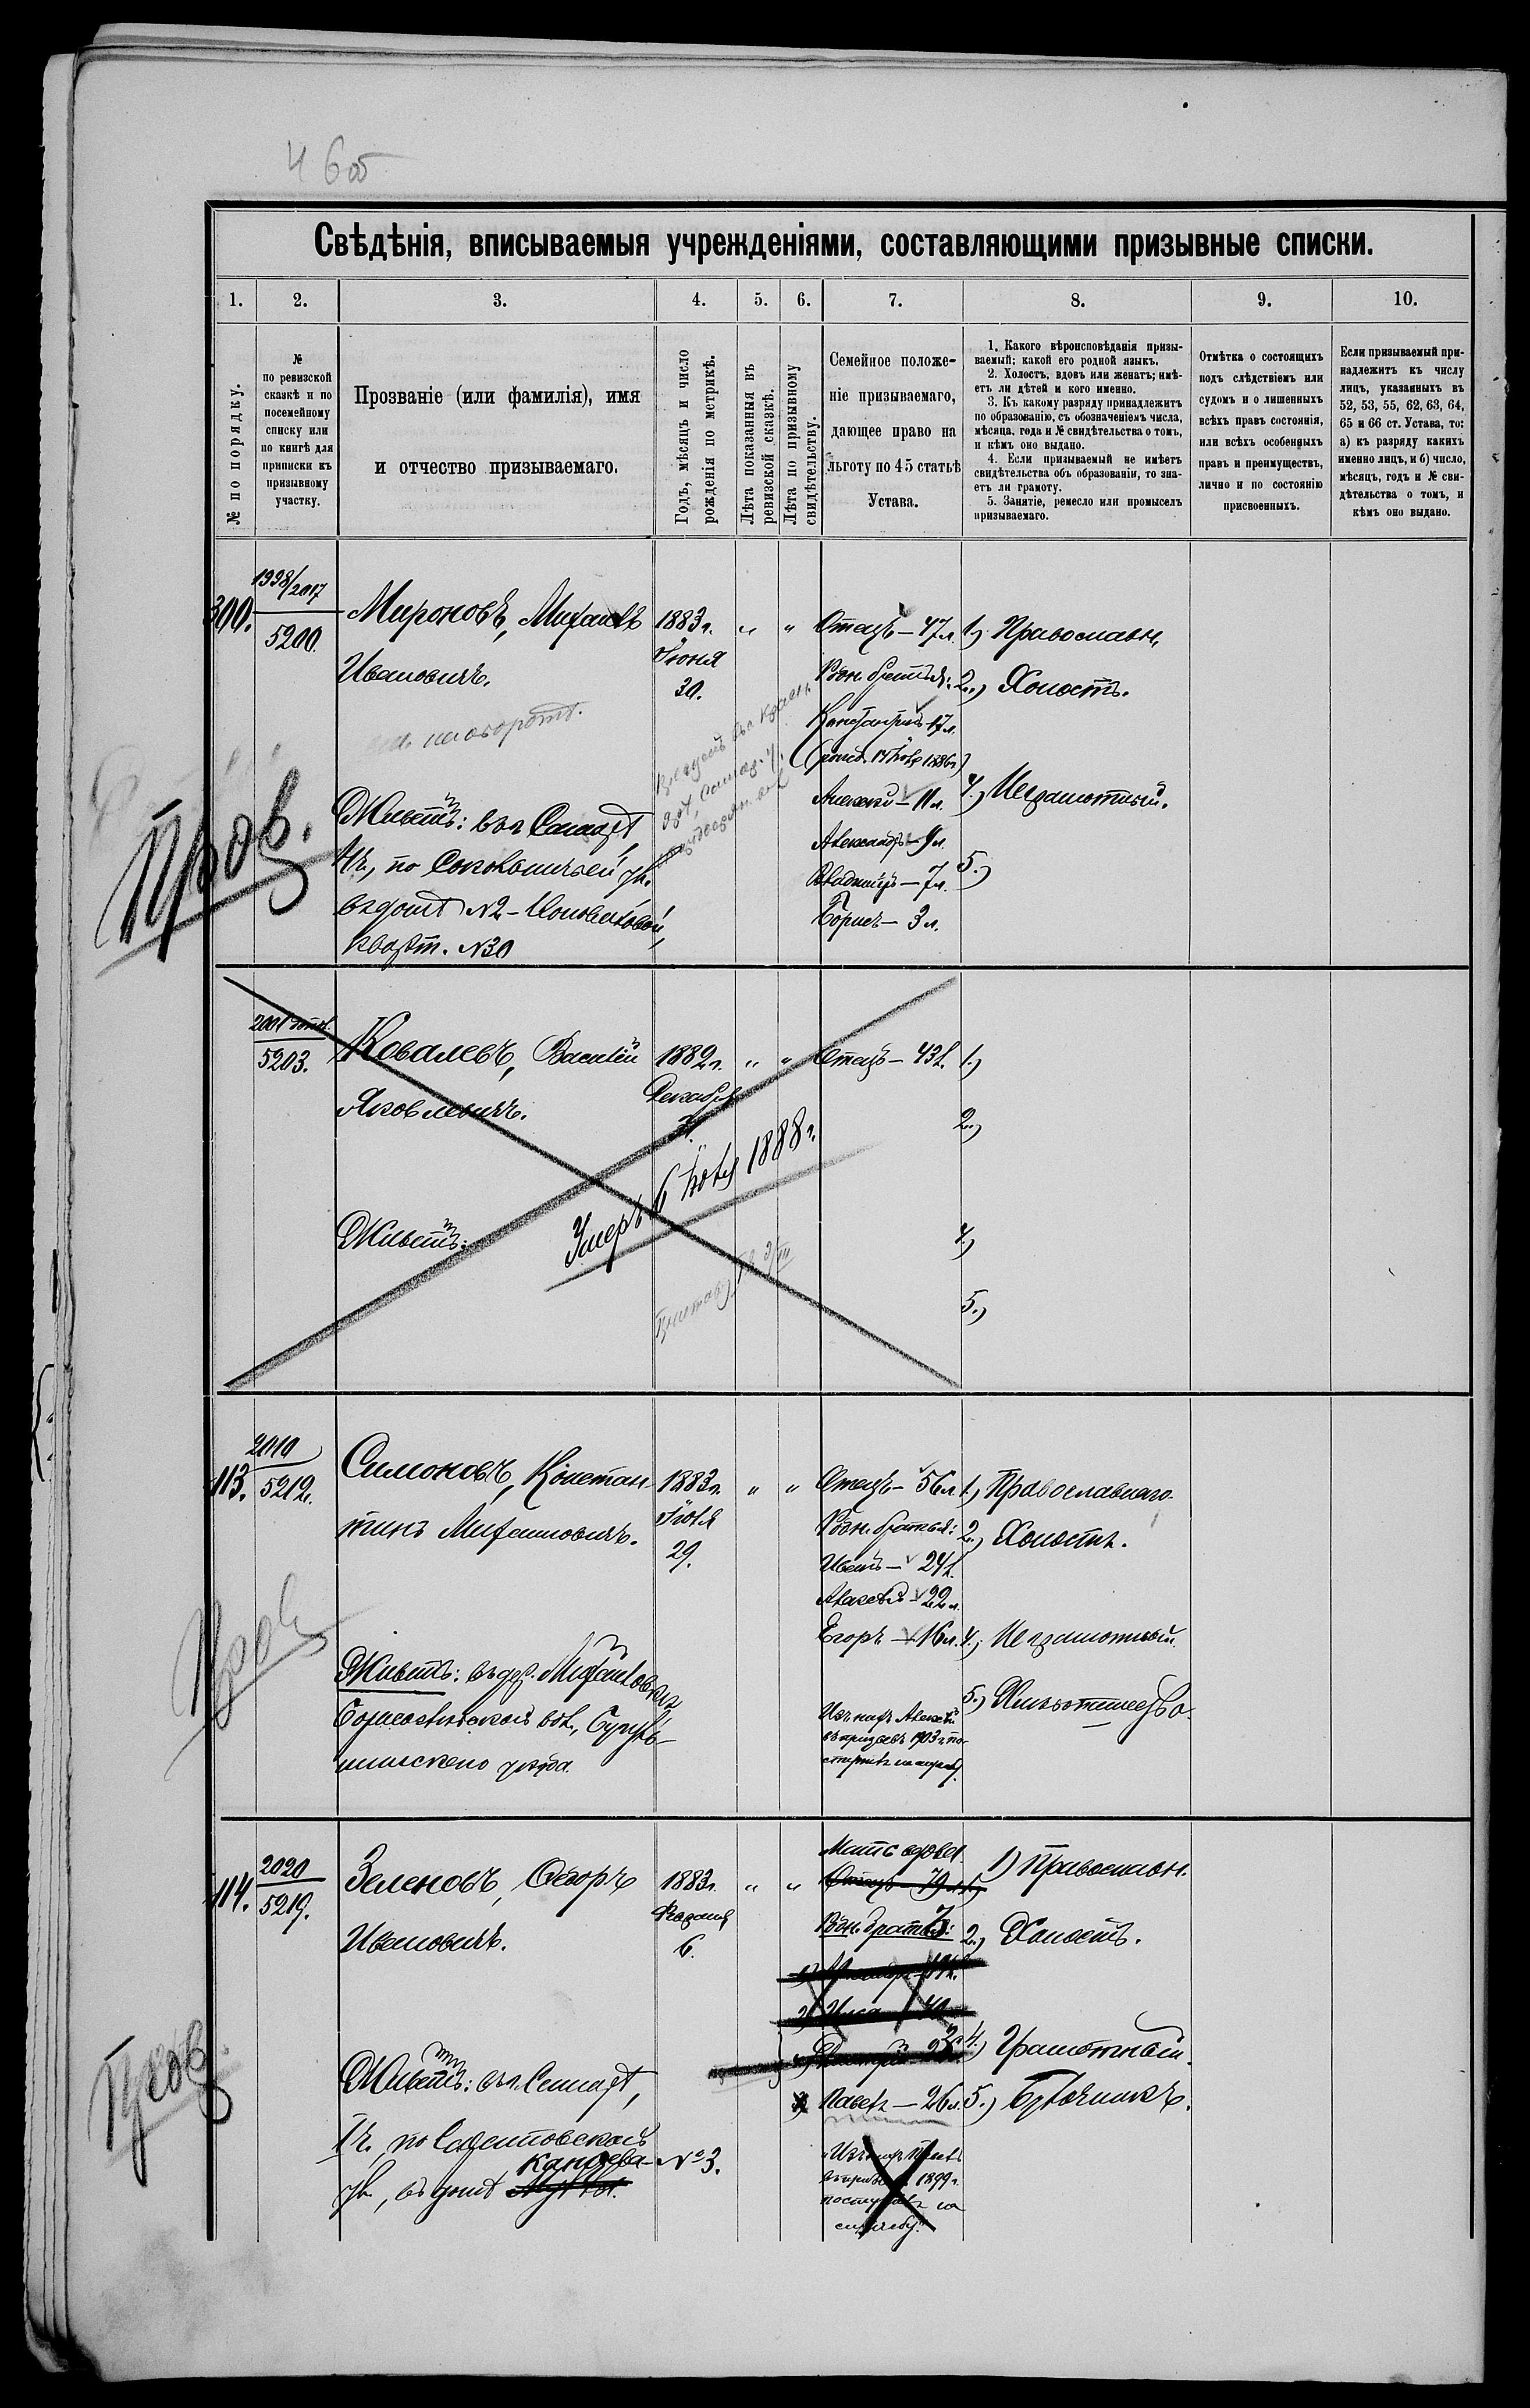 4 об
Свѣдѣнія, вписываемыя учрежденіями, составляющими призывные списки.
1. 2. 3. 4. 5. 6. 7. 8. 9. 10.
№ по порядку.
№
по ревизской
сказкѣ и по
посемейному
списку или
по книгѣ для
приписки къ
призывному
участку.
Прозваніе (или фамилія), имя
и отчество призываемаго.
Годъ, мѣсяцъ и число
рожденія по метрикѣ.
Лѣта показанныя въ
ревизской сказкѣ.
Лѣта по призывному
свидѣтельству.
Семейное положе-
ніе призываемаго,
дающее право на
льготу по 45 статьѣ
Устава.
1. Какого вѣроисповѣданія призы-
ваемый; какой его родной языкъ.
2. Холостъ, вдовъ или женатъ; имѣ-
етъ ли дѣтей и кого именно.
3. Къ какому разряду принадлежитъ
по образованію, съ обозначеніемъ числа,
мѣсяца, года и № свидѣтельства о томъ,
и кѣмъ оно выдано.
4. Если призываемый не имѣетъ
свидѣтельства объ образованіи, то зна-
етъ ли грамоту.
5. Занятіе, ремесло или промыселъ
призываемаго.
Отмѣтка о состоящихъ
подъ слѣдствіемъ или
судомъ и о лишенныхъ
всѣхъ правъ состоянія,
или всѣхъ особенныхъ
правъ и преимуществъ,
лично и по состоянію
присвоенныхъ.
Если призываемый при-
надлежитъ къ числу
лицъ, указанныхъ въ
52, 53, 55, 62, 63, 64,
65 и 66 ст. Устава, то:
а) къ разряду какихъ
именно лицъ, и б) число,
мѣсяцъ, годъ и № сви-
дѣтельства о томъ, и
кѣмъ оно выдано.
300.
1998/2017
5200.
Мироновъ, Михаилъ
Ивановичъ.
на оборотѣ.
Живетъ: въ г. Самарѣ,
по Сокольничьей ул.
въ домѣ №2 - Коноваловой,
кварт. №30
Пров.
1883 г.
Іюня
30.
" "
Отецъ - 47 л.
Родн. братья:
Константинъ 17 л.
Алексѣй - 11 л.
Александръ - 9 л.
Владиміръ - 7 л.
Борисъ - 3 л.
1.) Православн.
2.) Холостъ.
4.) Неграмотный.
5.)
5203.
Ковалевъ, Василій
Яковлевичъ.
Живетъ:
1882 г.
Декабря
" "
Умеръ 6 Іюля 1888 г.
Отецъ - 43 л.
1.)
2.)
4.)
5.)
113.
2010
5212.
Симоновъ, Констан-
тинъ Михаиловичъ.
Живетъ: въ дер. Михайловкѣ
вол., Бугуль-
минскаго уѣзда.
Пров.
1883 г.
Іюля
29.
" "
Отецъ - 56 л.
Родн. братья:
Иванъ - 24 л.
Алексѣй - 22 л.
Егоръ - 16 л.
Изъ нихъ Алексѣй
въ призывъ 1903 г. по-
ступилъ на службу.
1.) Православнаго.
2.) Холостъ.
4.) Неграмотный.
5.) Хлѣбопашество.
114.
2020
5219.
Зеленовъ, Ѳедоръ
Ивановичъ.
Живетъ: въ г. Самарѣ,
I ч., по
ул., въ домѣ Канаева №3.
Пров.
1883 г.
6.
" "
Мать вдова.
Отецъ 79 л.
Родн. братья:
Павелъ - 26 л.
Изъ нихъ Павелъ
въ призывъ 1899 г.
поступилъ на
службу.
1) Православн.
2.) Холостъ.
4.) Грамотный.
5.) Булочникъ.